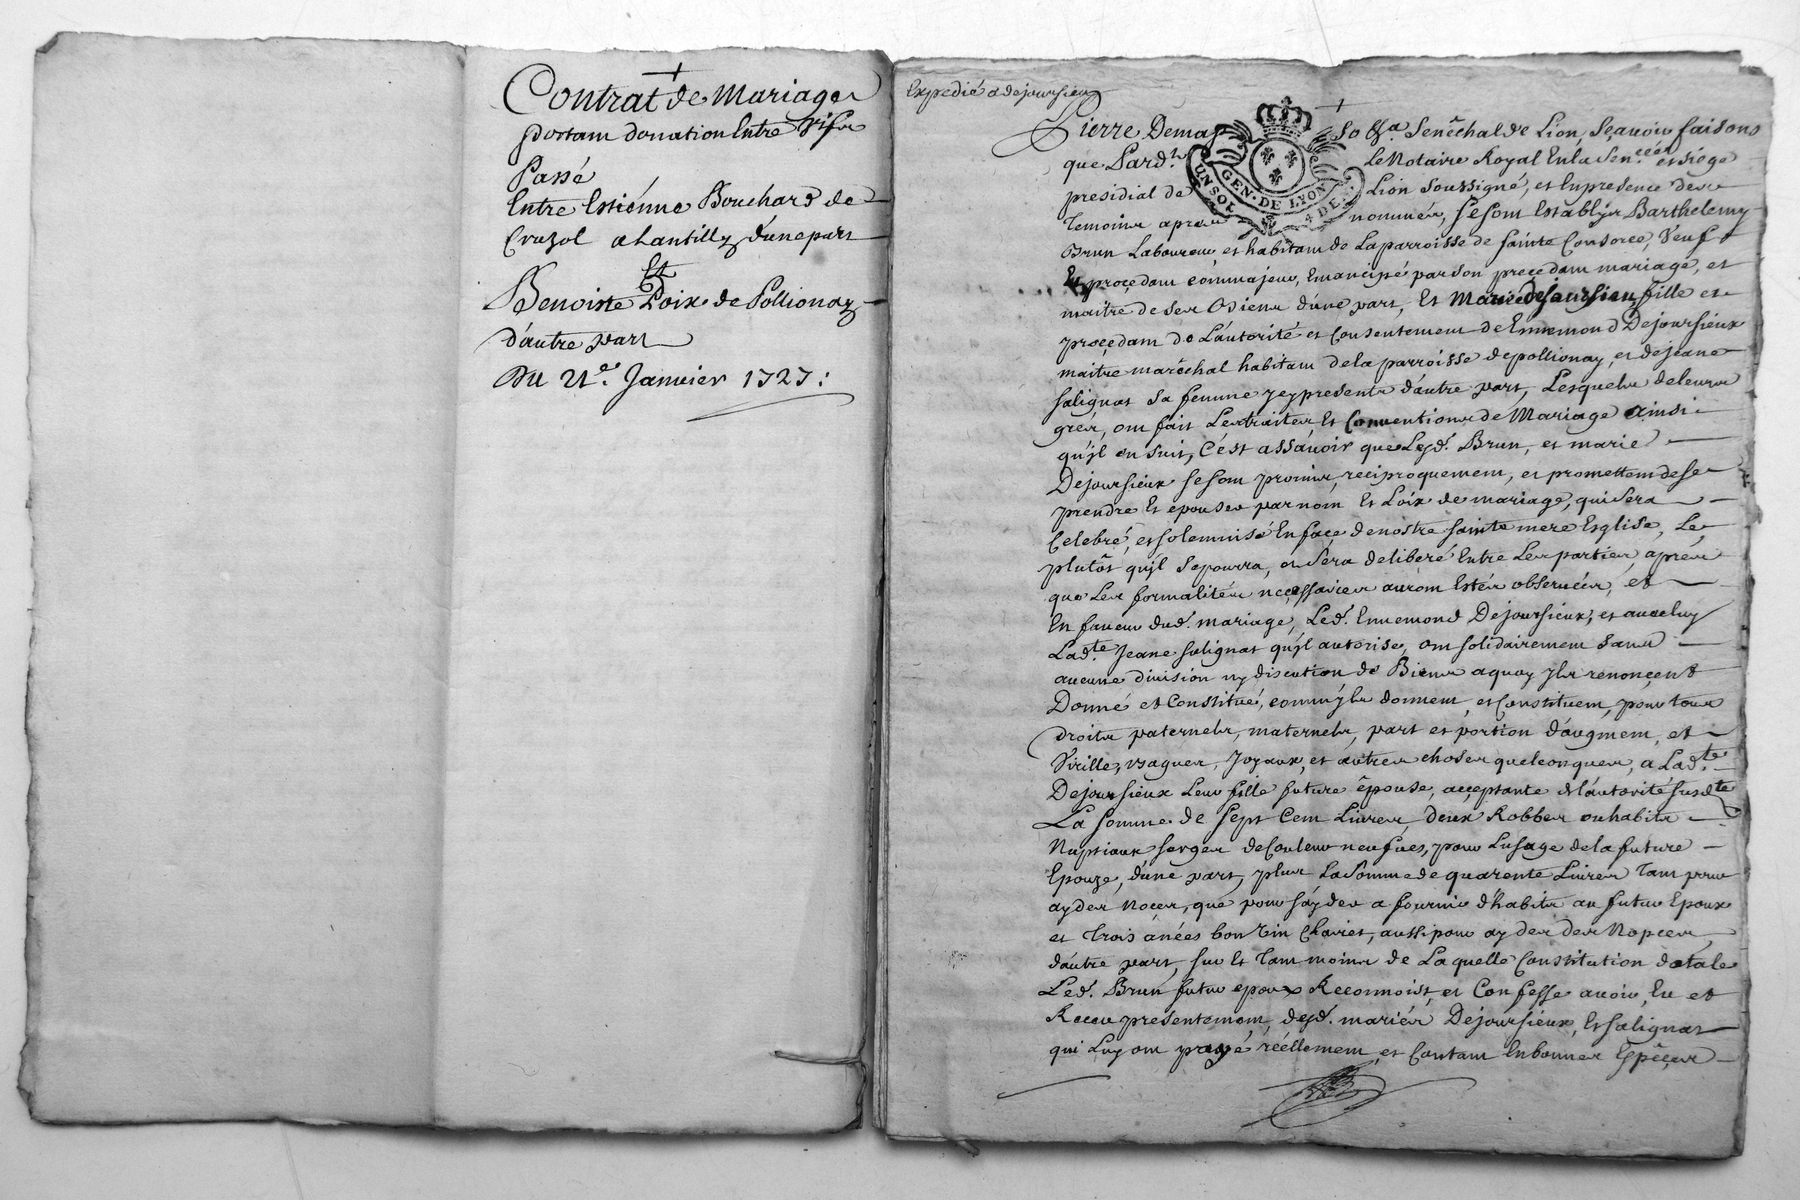 Contrat de Mariage
portant donation Entre vifs
Passé
Entre Estienne Bouchard de
Cruzol a Lantilly d'une part
Et
Benoiste Poix de Pollionay
d'autre part
Du 21e. Janvier 1727:
Expedié a dejoursieu
Pierre Demas so &a Senêchal de Lion, Sçavoir faisons
que Pard.t Le Notaire Royal En la Sen.cée et siege
presidial de Lion soussigné, et En presence des
Temoins apres nommés, se sont Establys Barthelemy
Brun Laboureur, et habitant de La parroisse de sainte Consorce, Veuf
Et procedant comme majeur, Emancipé par son precedant mariage, et
maitre de ses Biens d'une part, Et Marie dejoursieux, fille et
procedant de L'autorité et Consentement de Ennemond Dejoursieux
maitre marêchal habitant de la parroisse de pollionay, et de jeane
salignat sa femme jcy presents d'autre part, Lesquels de leurs
grés, ont fait Les traites et Conventions de Mariage ainsi
qu'jl en suit, C'est assavoir que Lesd. Brun, et marie
Dejoursieux se sont promis, reciproquement, et promettent de se
prendre Et épouser par nom Et Loix de mariage, qui sera
Celebré, et solemnisé En face de nostre sainte mere Esglise, Le
plutôt qu'jl se pourra, ou sera deliberé Entre Les parties, aprés
que Les formalités necessaires auront Estés observées, et
En faveur dud. mariage, Led. Ennemond Dejoursieux, et avec luy
Lad.te Jeane salignat qu'jl autorise, ont solidairement sans
aucune division ny discution de Biens a quoy jls renoncent
Donné et Constitué, comm'jls donnent, et Constituent, pour tous
droits paternels, maternels, part et portion d'augment, et
Virille, bagues, Joyaux, et autres choses quelconques, a Lad.te
Dejoursieux Leur fille future épouse, acceptante de l'autorité susd.te
La somme de sept Cent Livres, deux Robbes ou habits
Nuptiaux serges de Couleur neufves, pour L'usage de la future
Epouze, d'une part, plus La somme de quarente Livres Tant pour
ayder Noces, que pour s'ayder a fournir d'habits au futur Epoux
et Trois anées bon vin Clairet, aussi pour ayder des Nopces,
d'autre part, sur Et Tant moins de Laquelle Constitution dotale
Led. Brun futur epoux Reconnoist, et Confesse avoir, Eu et
Receu presentement, desd. mariés Dejoursieux, Et salignat
qui Luy ont payé réellement, et Contant En bonnes Espêces
GEN. DE LYON